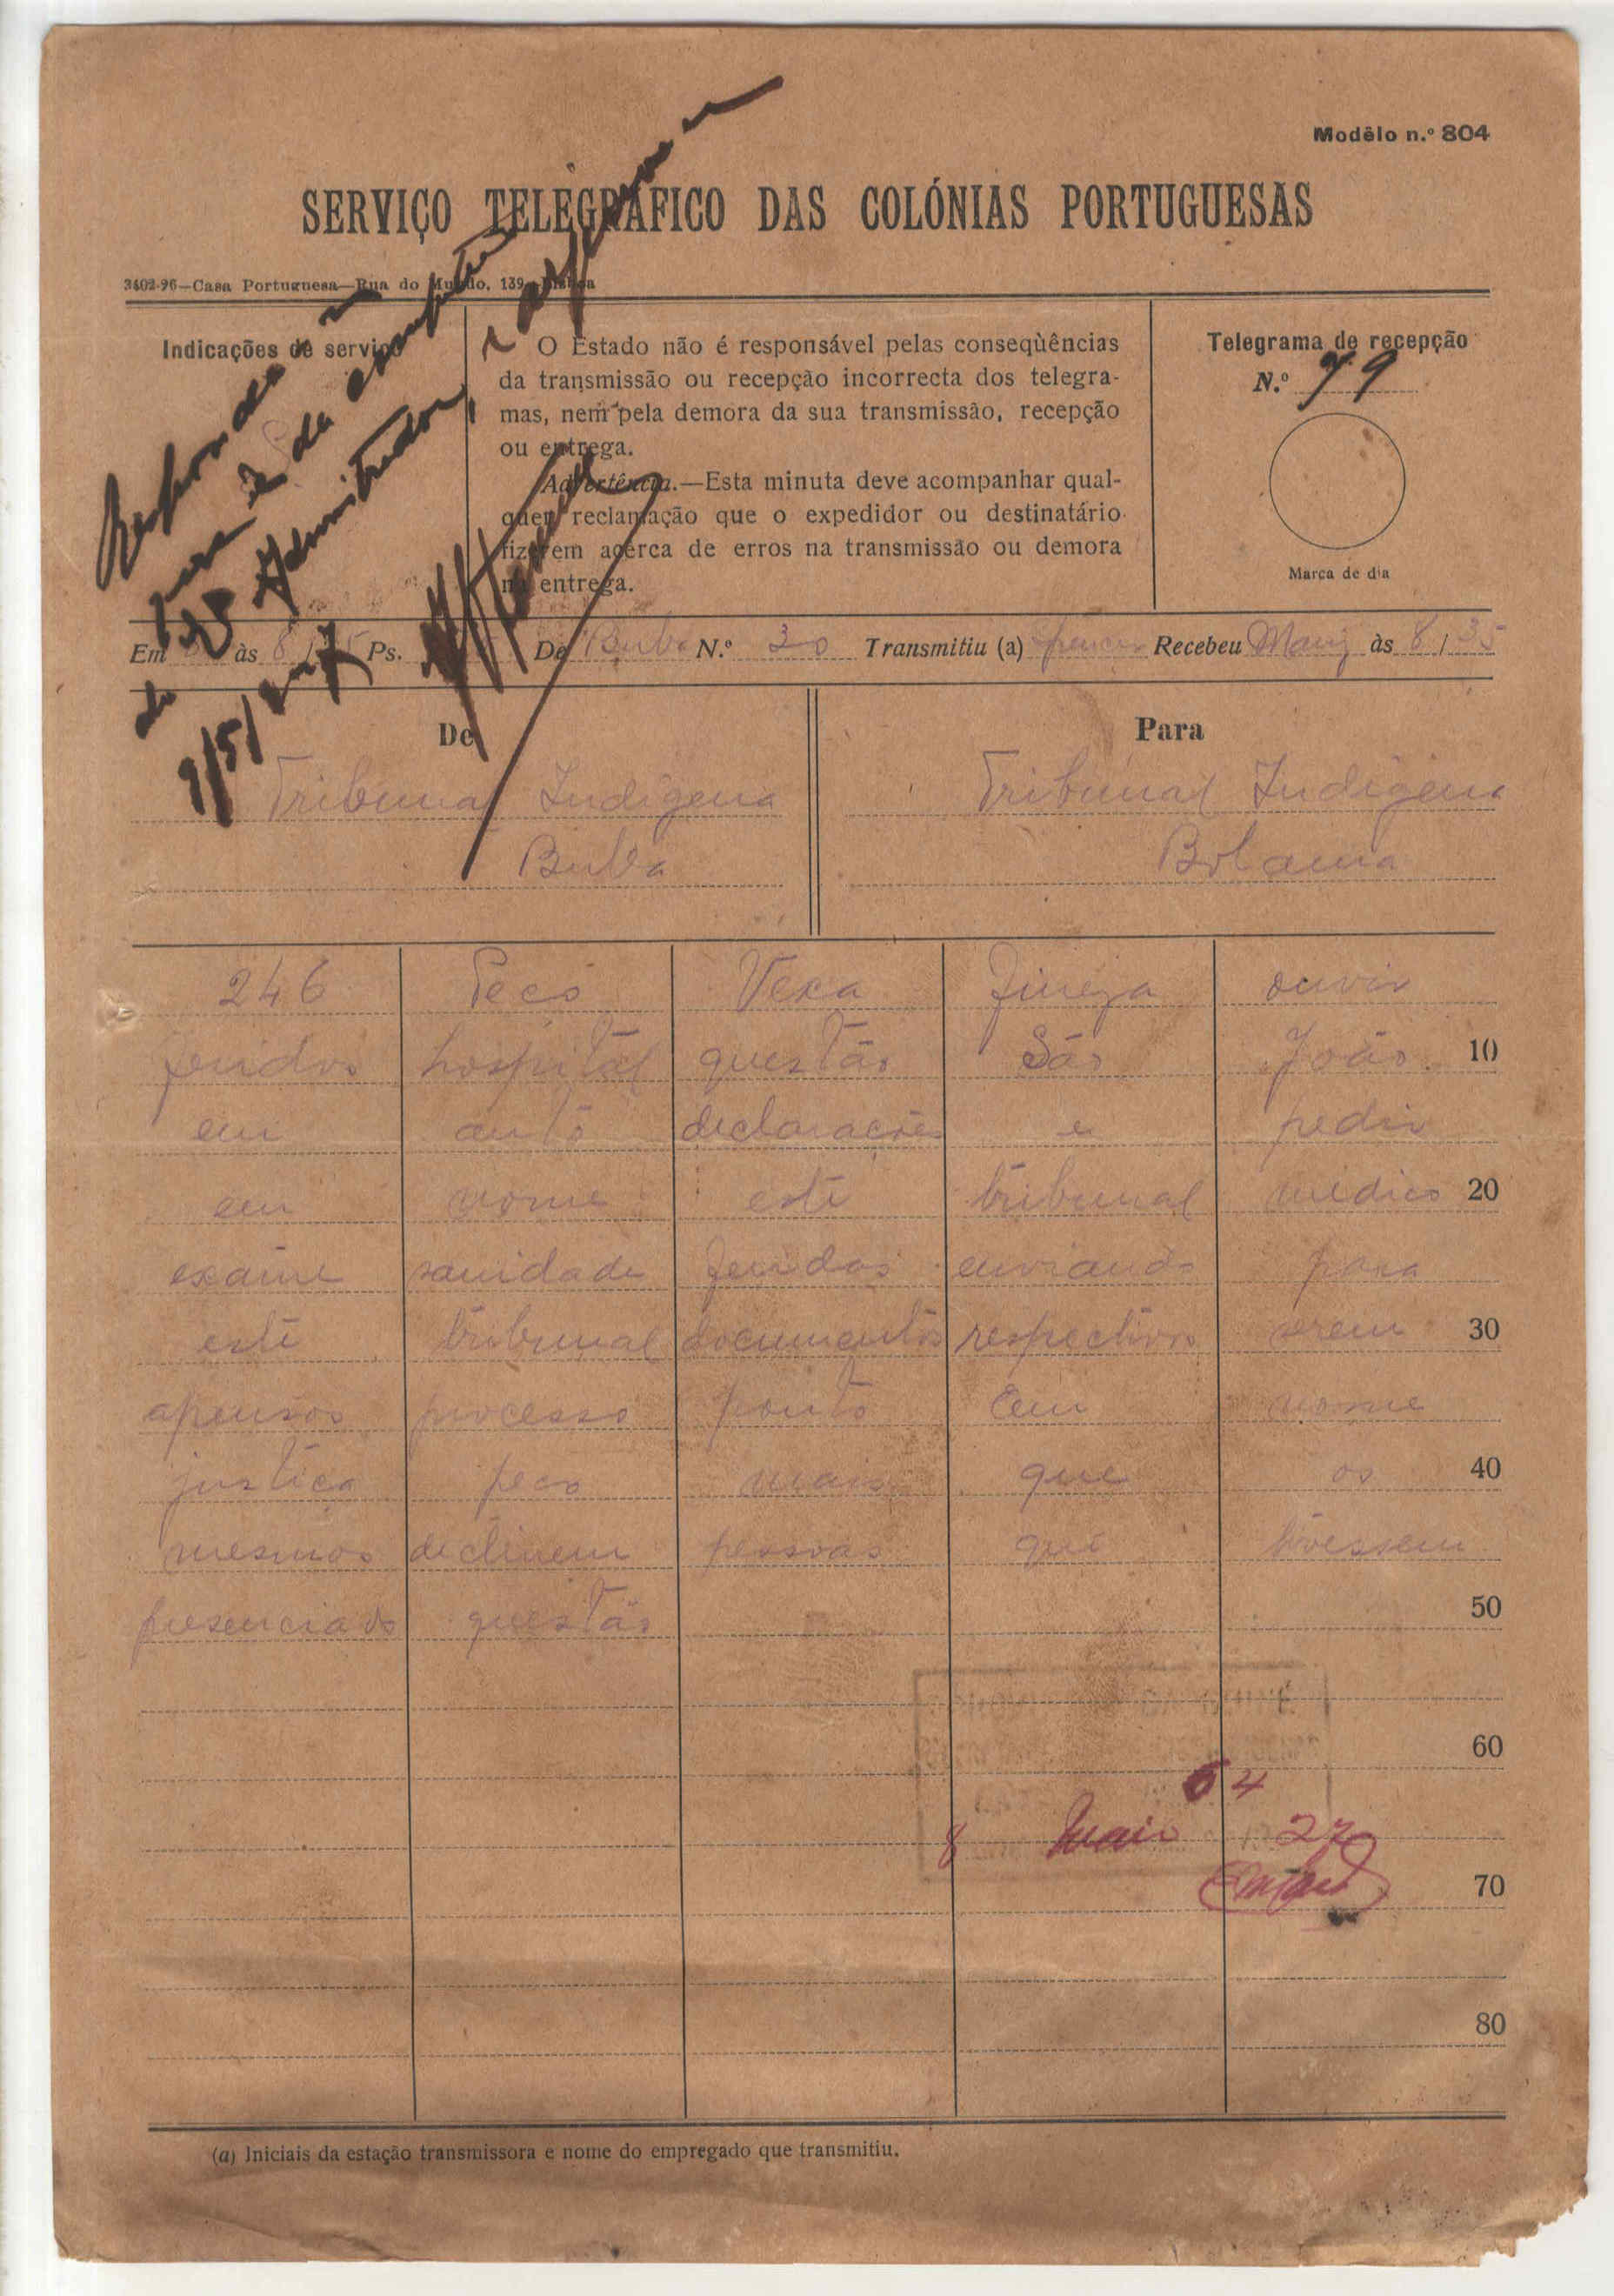 Modêlo n.º 804
SERVIÇO TELEGRÁFICO DAS COLÓNIAS PORTUGUESAS
3402-96—Casa Portuguesa—Rua do Mundo, 139—Lisboa
Indicações de serviço
O Estado não é responsável pelas conseqùências
da transmissão ou recepção incorrecta dos telegra-
mas, nem pela demora da sua transmissão, recepção
ou entrega.
Advertência.—Esta minuta deve acompanhar qual-
quer reclamação que o expedidor ou destinatário
fizerem acêrca de erros na transmissão ou demora
na entrega.
Telegrama de recepção
N.º 79
Marca de dia
Administrador
9/5/927
Em às 8 / Ps. De Buba N.º 30 Transmitiu (a) Recebeu às 8 / 35
De
Tribunal Indigena
Buba
Para
Tribunal Indigena
Bolama
246 Peço Vexa fineza ouvir
feridos hospital questão São João 10
em auto declarações e pedir
em nome este tribunal médico 20
exame sanidade feridos enviando para
este tribunal documentos respectivos serem 30
apensos processo ponto Em nome
justiça peço mais que os 40
mesmos declinem pessoas que tivessem
presenciado questão 50
60
54
8 Maio 27
70
80
(a) Iniciais da estação transmissora e nome do empregado que transmitiu.